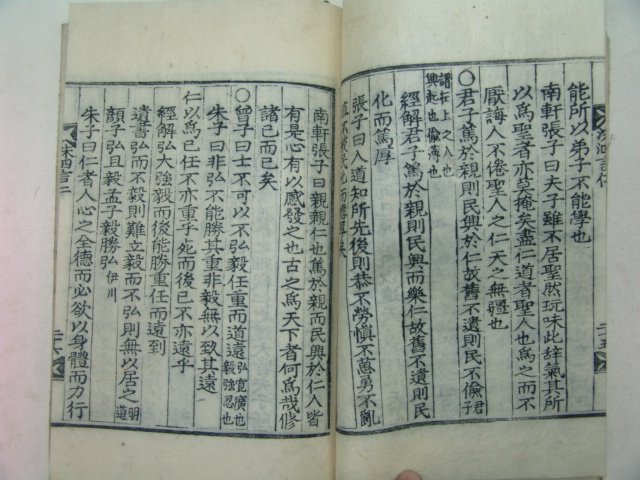 能所以弟子不能學也
南軒張子曰夫子雖不居聖然玩味此辭氣其所
以爲聖者亦莫掩矣盡仁道者聖人也爲之而不
厭誨人不倦聖人之仁天之無疆也
○君子篤於親則民興於仁故舊不遺則民不偸君子
謂在上之人也
興起也偸薄也
經解君子篤於親則民興而樂仁故舊不遺則民
化而篤厚
張子曰人道知所先後則恭不勞愼不葸勇不亂
直不絞民化而德厚矣
南軒張子曰親親仁也篤於親而民興於仁人皆
有是心有以感發之也古之爲天下者何爲哉修
諸己而已矣
○曾子曰士不可以不弘毅任重而道遠弘寛廣也
毅強忍也
朱子曰非弘不能勝其重非毅無以致其遠
仁以爲己任不亦重乎死而後已不亦遠乎
經解弘大強毅而後能勝重任而遠到
遺書弘而不毅則難立毅而不弘則無以居之明道
顏子弘且毅孟子毅勝弘伊川
朱子曰仁者人心之全德而必欲以身體而力行